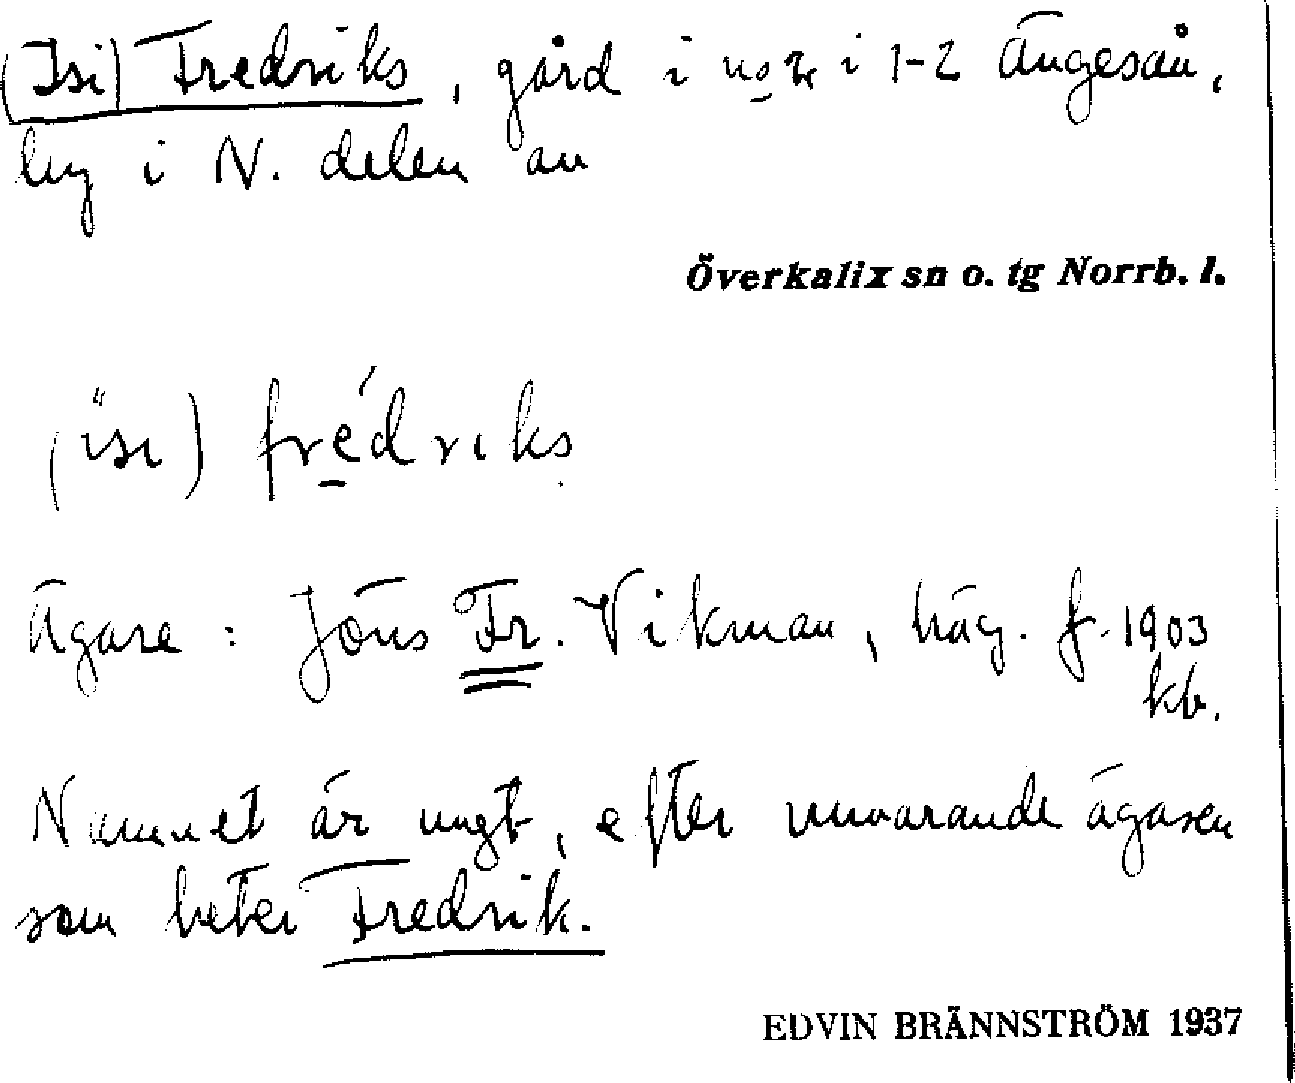 (Isi) Fredriks, gård i i 1-2 Ängesån,
by i N. delen av
Överkalix sn o. tg Norrb. l.
(isi) frédriks
Ägare: Jöns Fr. Vikman, häg. f. 1903
kb.
Namnet är ungt, efter nuvarande ägaren
som heter Fredrik.
EDVIN BRÄNNSTRÖM 1937